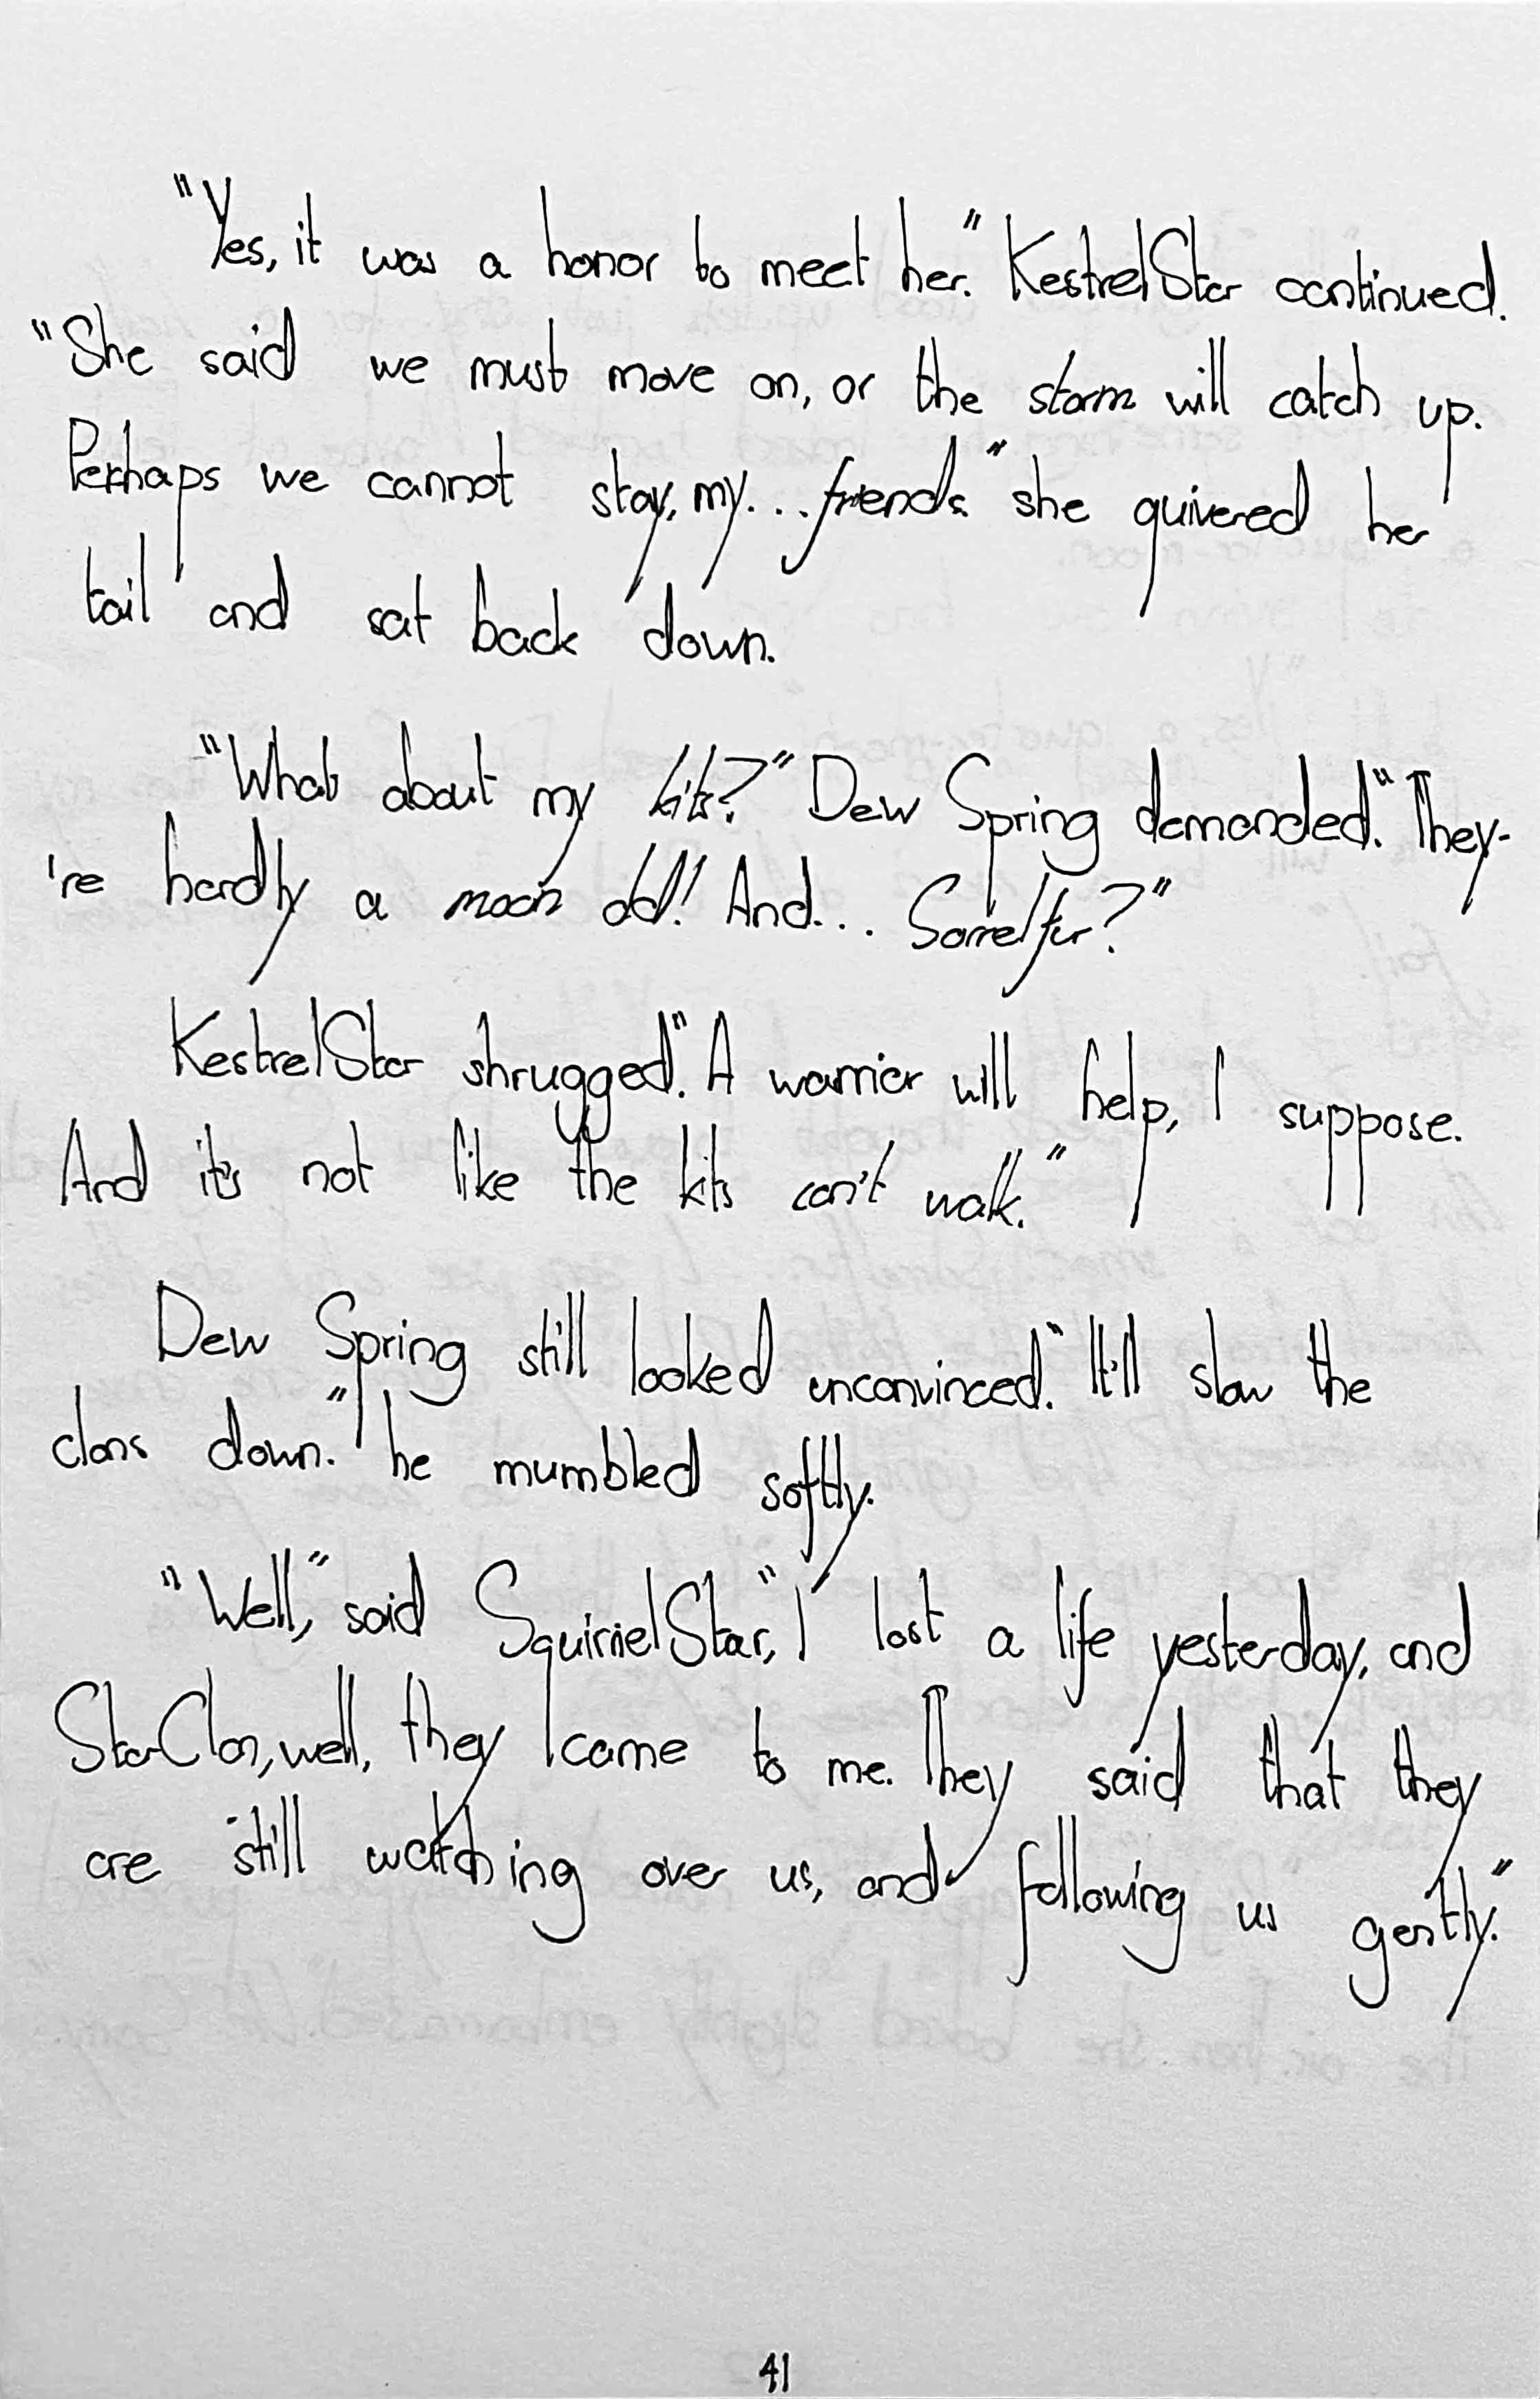 "Yes, it was a honor to meet her." KestrelStar continued.
"She said we must move on, or the storm will catch up.
Perhaps we cannot stay, my... friends." she quivered her
tail and sat back down.
"What about my kits?" Dew Spring demanded. "They-
're hardly a moon old! And... Sorrelfur?"
KestrelStar shrugged. "A warrior will help, I suppose.
And it's not like the kits can't walk."
Dew Spring still looked unconvinced. "It'll slow the
clans down." he mumbled softly.
"Well," said SquirrelStar, "I lost a life yesterday, and
StarClan, well, they came to me. They said that they
are still watching over us, and following us gently."
41